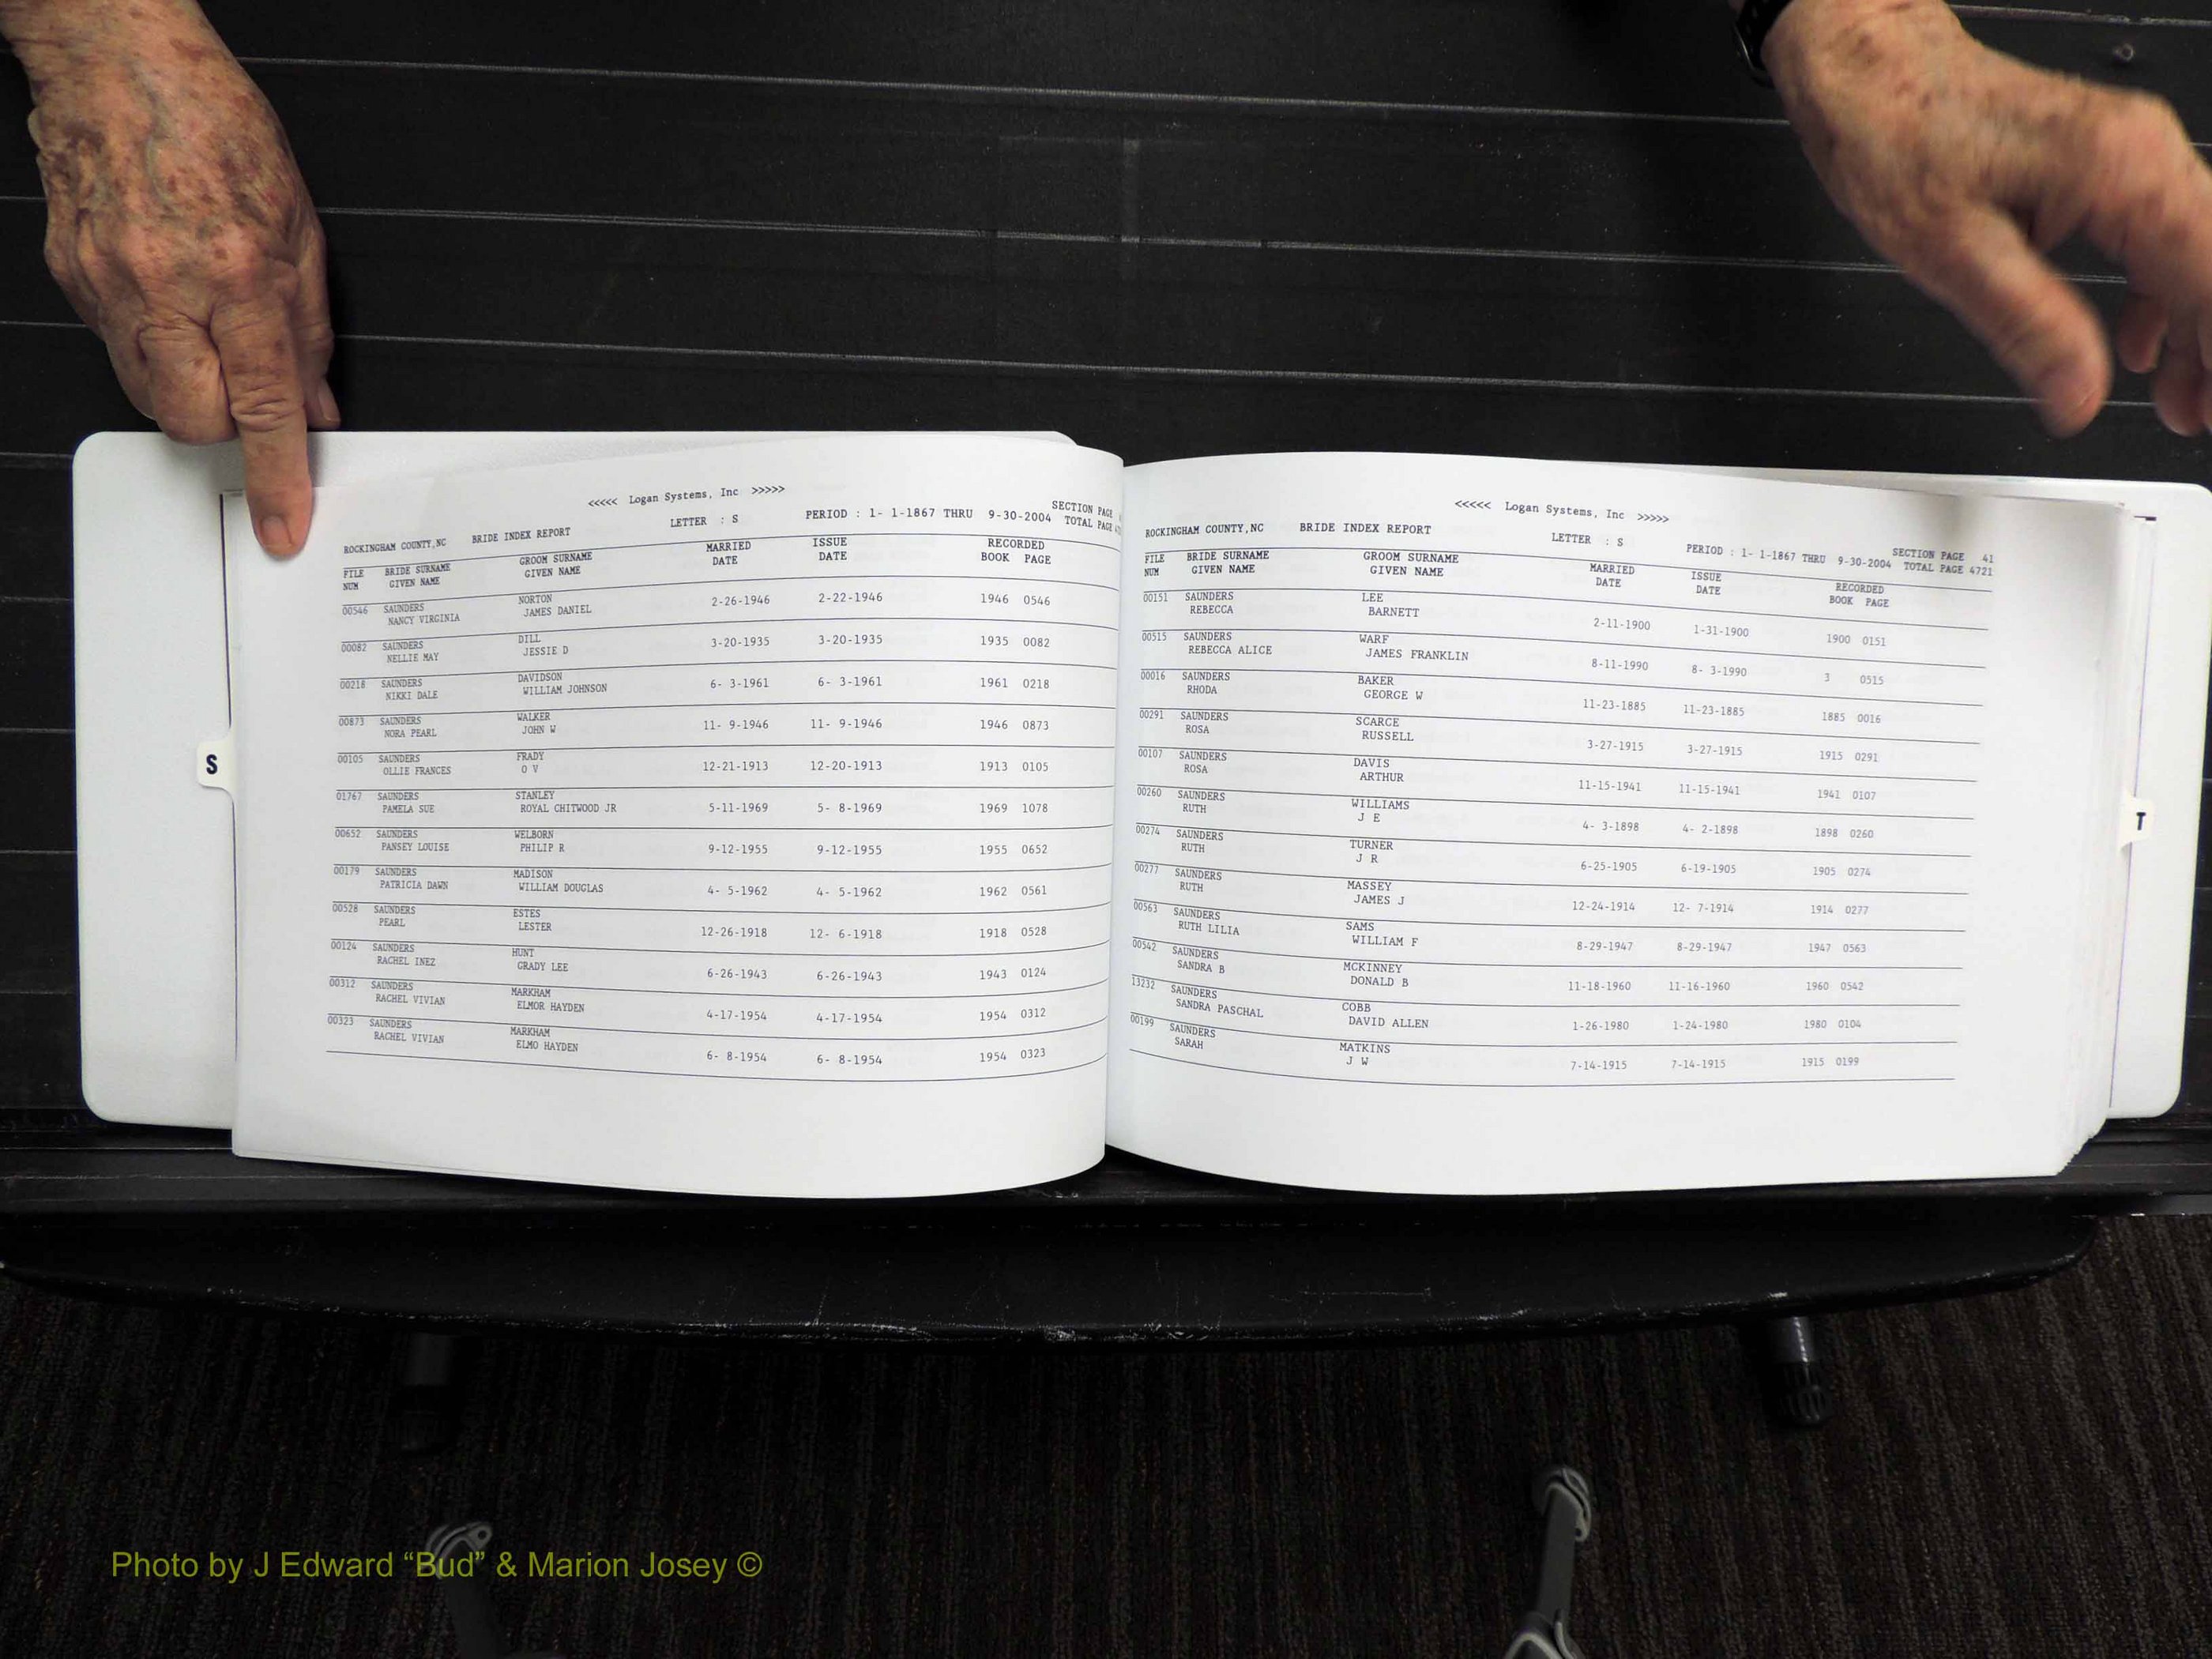 <<<<< Logan Systems, Inc >>>>>
SECTION PAGE
ROCKINGHAM COUNTY,NC BRIDE INDEX REPORT LETTER : S PERIOD : 1- 1-1867 THRU 9-30-2004 TOTAL PAGE
FILE BRIDE SURNAME GROOM SURNAME MARRIED ISSUE RECORDED
NUM GIVEN NAME GIVEN NAME DATE DATE BOOK PAGE
00546 SAUNDERS NORTON 2-26-1946 2-22-1946 1946 0546
NANCY VIRGINIA JAMES DANIEL
00082 SAUNDERS DILL 3-20-1935 3-20-1935 1935 0082
NELLIE MAY JESSIE D
00218 SAUNDERS DAVIDSON 6- 3-1961 6- 3-1961 1961 0218
NIKKI DALE WILLIAM JOHNSON
00873 SAUNDERS WALKER 11- 9-1946 11- 9-1946 1946 0873
NORA PEARL JOHN W
00105 SAUNDERS FRADY 12-21-1913 12-20-1913 1913 0105
OLLIE FRANCES O V
01767 SAUNDERS STANLEY 5-11-1969 5- 8-1969 1969 1078
PAMELA SUE ROYAL CHITWOOD JR
00652 SAUNDERS WELBORN 9-12-1955 9-12-1955 1955 0652
PANSEY LOUISE PHILIP R
00179 SAUNDERS MADISON 4- 5-1962 4- 5-1962 1962 0561
PATRICIA DAWN WILLIAM DOUGLAS
00528 SAUNDERS ESTES 12-26-1918 12- 6-1918 1918 0528
PEARL LESTER
00124 SAUNDERS HUNT 6-26-1943 6-26-1943 1943 0124
RACHEL INEZ GRADY LEE
00312 SAUNDERS MARKHAM 4-17-1954 4-17-1954 1954 0312
RACHEL VIVIAN ELMOR HAYDEN
00323 SAUNDERS MARKHAM 6- 8-1954 6- 8-1954 1954 0323
RACHEL VIVIAN ELMO HAYDEN
S
<<<<< Logan Systems, Inc >>>>>
SECTION PAGE 41
ROCKINGHAM COUNTY,NC BRIDE INDEX REPORT LETTER : S PERIOD : 1- 1-1867 THRU 9-30-2004 TOTAL PAGE 4721
FILE BRIDE SURNAME GROOM SURNAME MARRIED ISSUE RECORDED
NUM GIVEN NAME GIVEN NAME DATE DATE BOOK PAGE
00151 SAUNDERS LEE 2-11-1900 1-31-1900 1900 0151
REBECCA BARNETT
00515 SAUNDERS WARF 8-11-1990 8- 3-1990 3 0515
REBECCA ALICE JAMES FRANKLIN
00016 SAUNDERS BAKER 11-23-1885 11-23-1885 1885 0016
RHODA GEORGE W
00291 SAUNDERS SCARCE 3-27-1915 3-27-1915 1915 0291
ROSA RUSSELL
00107 SAUNDERS DAVIS 11-15-1941 11-15-1941 1941 0107
ROSA ARTHUR
00260 SAUNDERS WILLIAMS 4- 3-1898 4- 2-1898 1898 0260
RUTH J E
00274 SAUNDERS TURNER 6-25-1905 6-19-1905 1905 0274
RUTH J R
00277 SAUNDERS MASSEY 12-24-1914 12- 7-1914 1914 0277
RUTH JAMES J
00563 SAUNDERS SAMS 8-29-1947 8-29-1947 1947 0563
RUTH LILIA WILLIAM F
00542 SAUNDERS MCKINNEY 11-18-1960 11-16-1960 1960 0542
SANDRA B DONALD B
13232 SAUNDERS COBB 1-26-1980 1-24-1980 1980 0104
SANDRA PASCHAL DAVID ALLEN
00199 SAUNDERS MATKINS 7-14-1915 7-14-1915 1915 0199
SARAH J W
T
Photo by J Edward “Bud” & Marion Josey ©